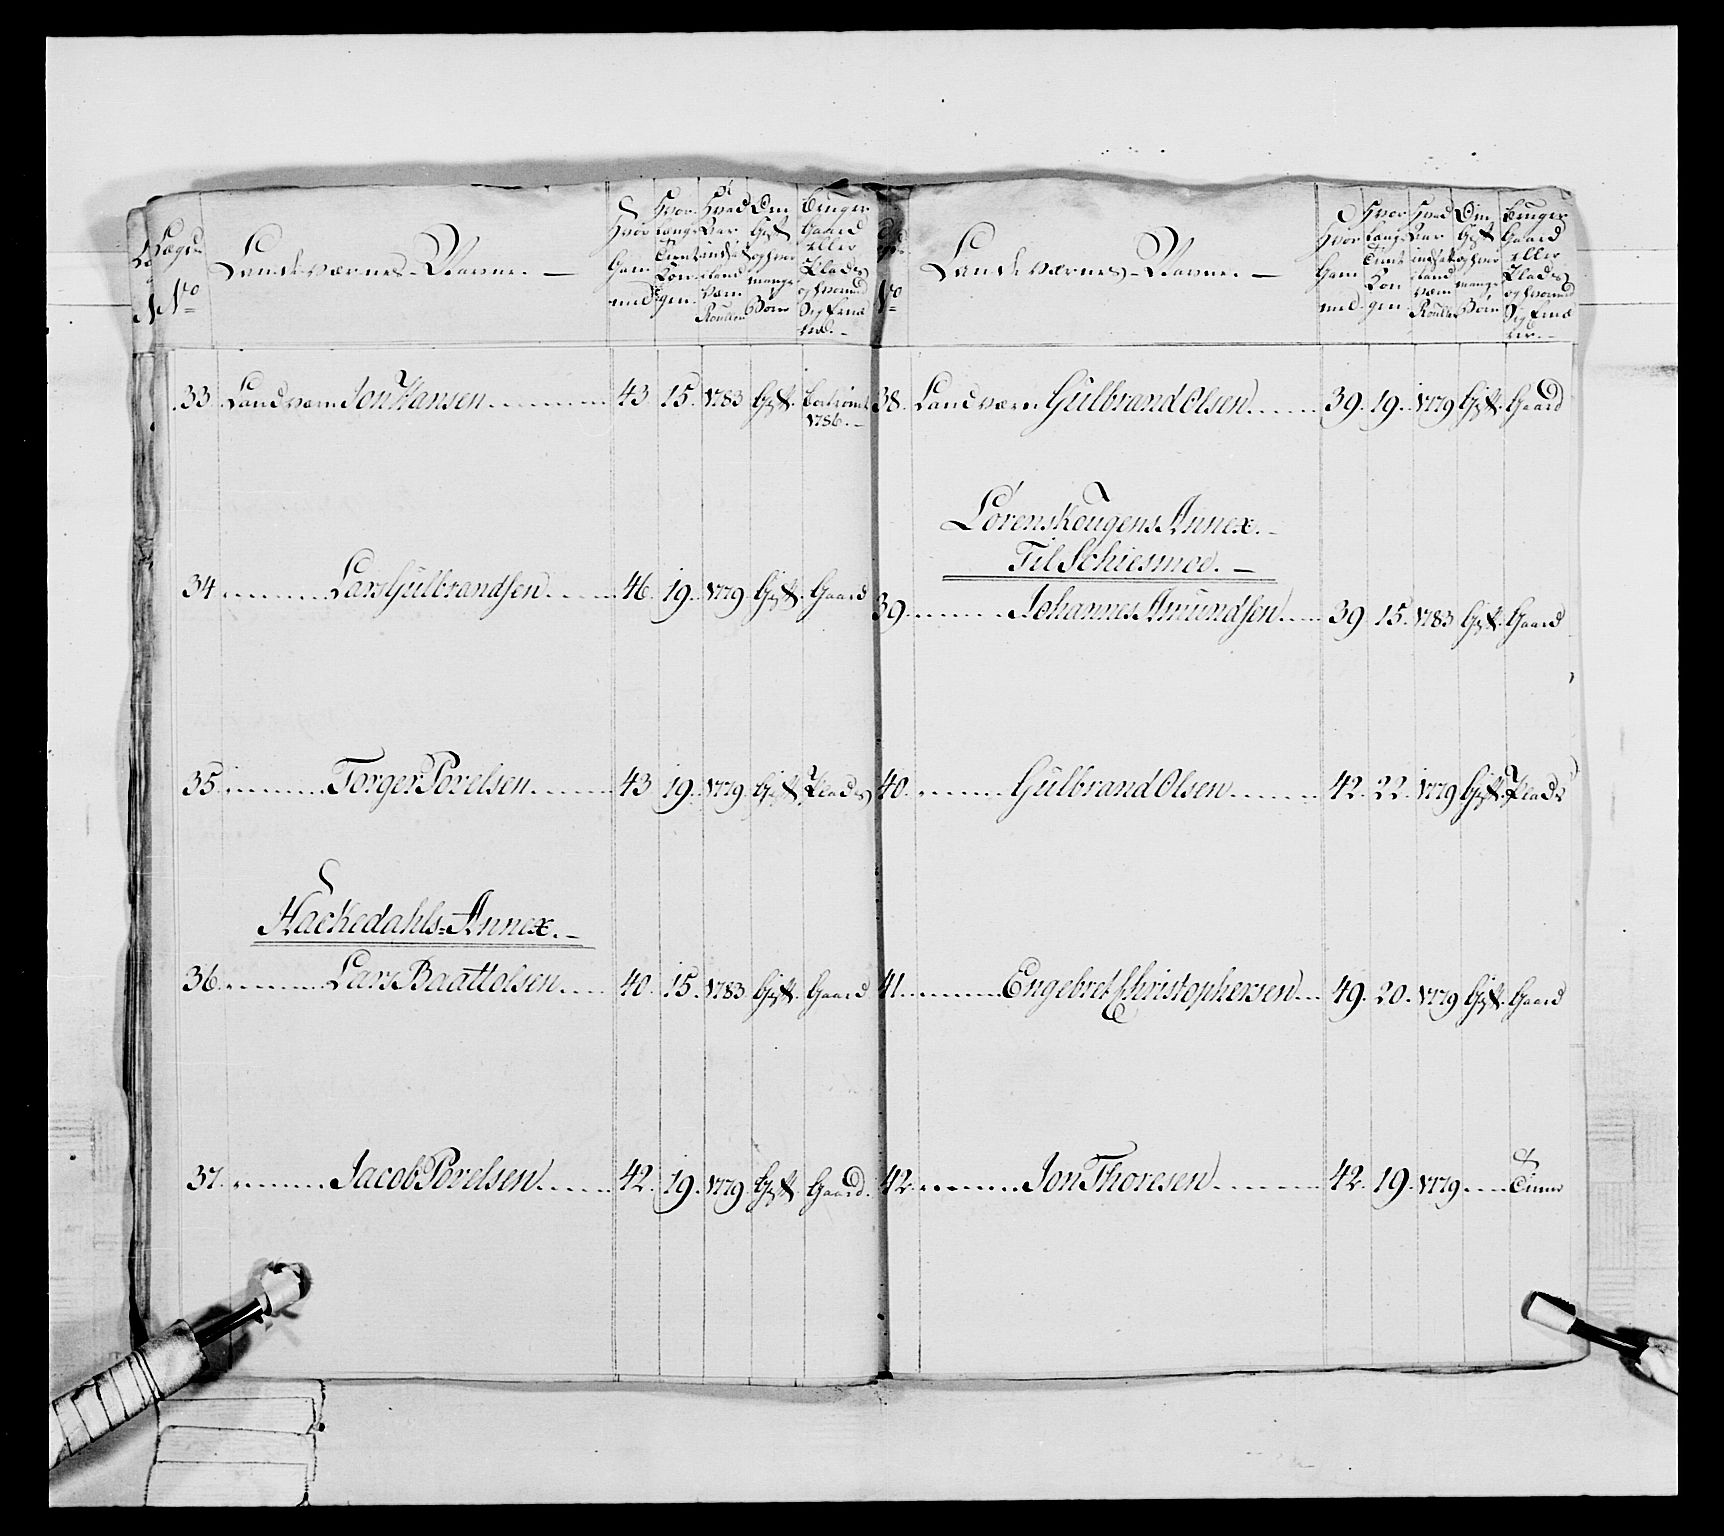 Lægds No
Landeværnes Navne. —
Hvor Gammel
Hvor længe Tient Kongen
Hvad Aar indsat i Land Værn Roullen
Om Gift og hvor mange Børn
Bruger Gaard eller Plads og hvormed Sig ernærer. —
33 Landværn Jon Hansen 43 15 1783 Gift 1786. —
34 Lars Gulbrandsen 46 19 1779 Gift Gaard
35 Torger Povelsen 43 19 1779 Gift Plads
Hackedahls=Annex. —
36 Lars Baattolsen 40 15 1783 Gift Gaard
37 Jacob Povelsen 42 19 1779 Gift Gaard.
No
Landeværnes Navne. —
Hvor Gammel.
Hvor længe Tient Kongen
Hvad Aar indsat i Land Værn Roullen
Om Gift og hvor mange Børn
Bruger Gaard eller Plads og hvormed Sig ernærer. —
38. Landværn Gulbrand Olsen 39. 19. 1779 Gift. Gaard
Lørenskougens Annex. —
Til Schiesmoe. —
39. Johannes Amundsen 39 15. 1783 Gift. Gaard
40. Gulbrand Olsen 42. 22. 1779 Gift. Plads
41. Engebret Christophersen 49. 20. 1779 Gift. Gaard
42. Jon Thoresen 42. 19 1779 Tiener